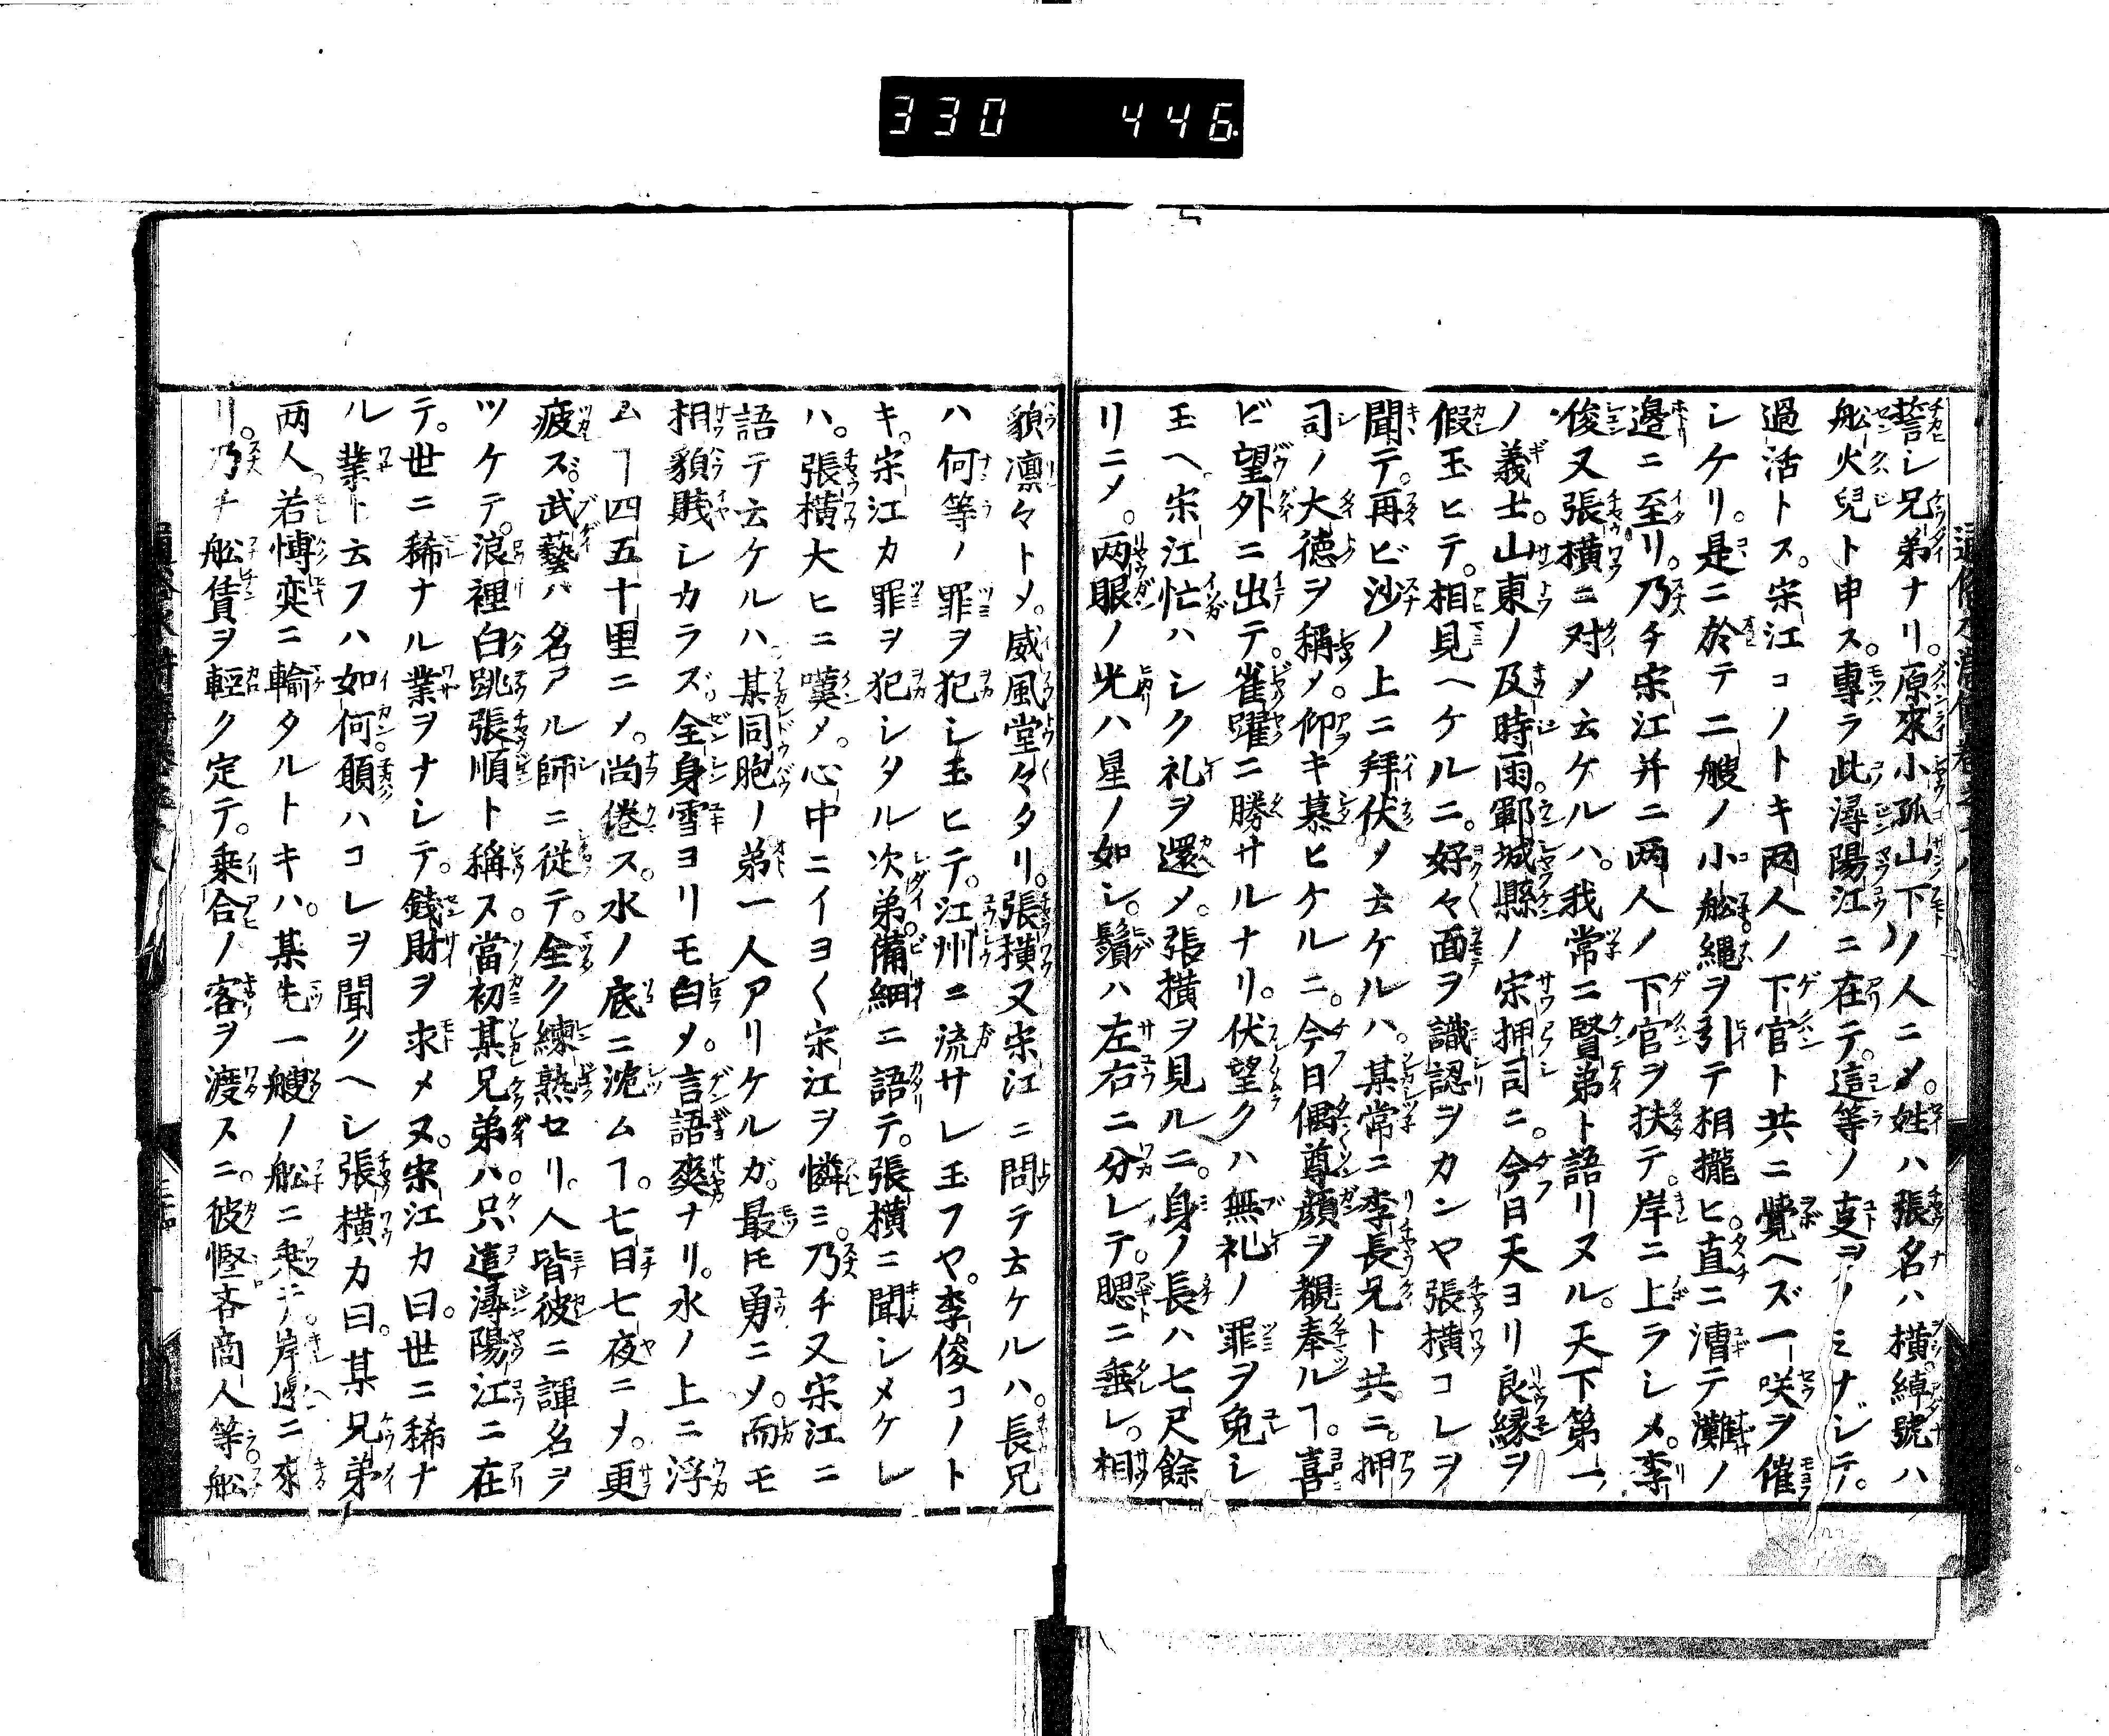 330 446
誓シ兄弟ナリ。原來小孤山下ノ人ニメ。姓ハ張名ハ橫綽號ハ
舩火兒ト申ス。專ラ此潯陽江ニ在テ。這等ノ支ヲノミナシテ。
過活トス。宋江コノトキ兩人ノ下官ト共ニ覺ヘズ一咲ヲ催
シケリ。是ニ於テ二艘ノ小舩。繩ヲ引テ相攏ヒ。直ニ漕テ灘ノ
邊ニ至リ。乃チ宋江并ニ兩人ノ下官ヲ扶テ。岸ニ上ラシメ。李
俊又張橫ニ对メ云ケルハ。我常ニ賢弟ト語リヌル。天下第一
ノ義士。山東ノ及時雨。鄆城縣ノ宋押司ニ。今日天ヨリ良緣ヲ
假玉ヒテ。相見ヘケルニ。好々面ヲ識認ヲカンヤ張橫コレヲ
聞テ。再ビ沙ノ上ニ拜伏メ云ケルハ。某常ニ李長兄ト共ニ。押
司ノ大德ヲ稱メ。仰キ慕ヒケルニ。今日偶尊顏ヲ覩奉ルヿ。喜
ビ望外ニ出テ。雀躍ニ勝サルナリ。伏望クハ無礼ノ罪ヲ免シ
玉ヘ。宋江忙ハシク礼ヲ還メ。張橫ヲ見ルニ。身ノ長ハ七尺餘
リニメ。兩眼ノ光ハ星ノ如シ。鬚ハ左右ニ分レテ。腮ニ垂レ。相
貌凛々トメ。威風堂々タリ。張橫又宋江ニ問テ云ケルハ。長兄
ハ何等ノ罪ヲ犯シ玉ヒテ。江州ニ流サレ玉フヤ。李俊コノト
キ。宋江カ罪ヲ犯シタル次弟。備細ニ語テ。張橫ニ聞シメケレ
ハ。張橫大ヒニ嘆メ。心中ニイヨ〱宋江ヲ憐ミ。乃チ又宋江ニ
語テ云ケルハ。某同胞ノ弟一人アリケルガ。最モ勇ニメ。而モ
相貌賤シカラズ。全身雪ヨリモ白メ。言語爽ナリ。水ノ上ニ浮
ムヿ四五十里ニメ。尚倦ス。水ノ底ニ沈ムヿ。七日七夜ニメ。更
疲ズ。武藝ハ名アル師ニ從テ。全ク練熟セリ。人皆彼ニ諢名ヲ
ツケテ。浪裡白跳張順ト稱ス。當初某兄弟ハ。只這潯陽江ニ在
テ。世ニ稀ナル業ヲナシテ。錢財ヲ求メヌ。宋江カ曰。世ニ稀ナ
ル業ト云フハ如何。願ハコレヲ聞クヘシ張橫カ曰。某兄弟
兩人。若慱奕ニ輸タルトキハ。某先一艘ノ舩ニ乘テ。岸邊ニ來
リ。乃チ舩賃ヲ輕ク定テ。乘合ノ客ヲ渡スニ。彼慳吝商人等舩